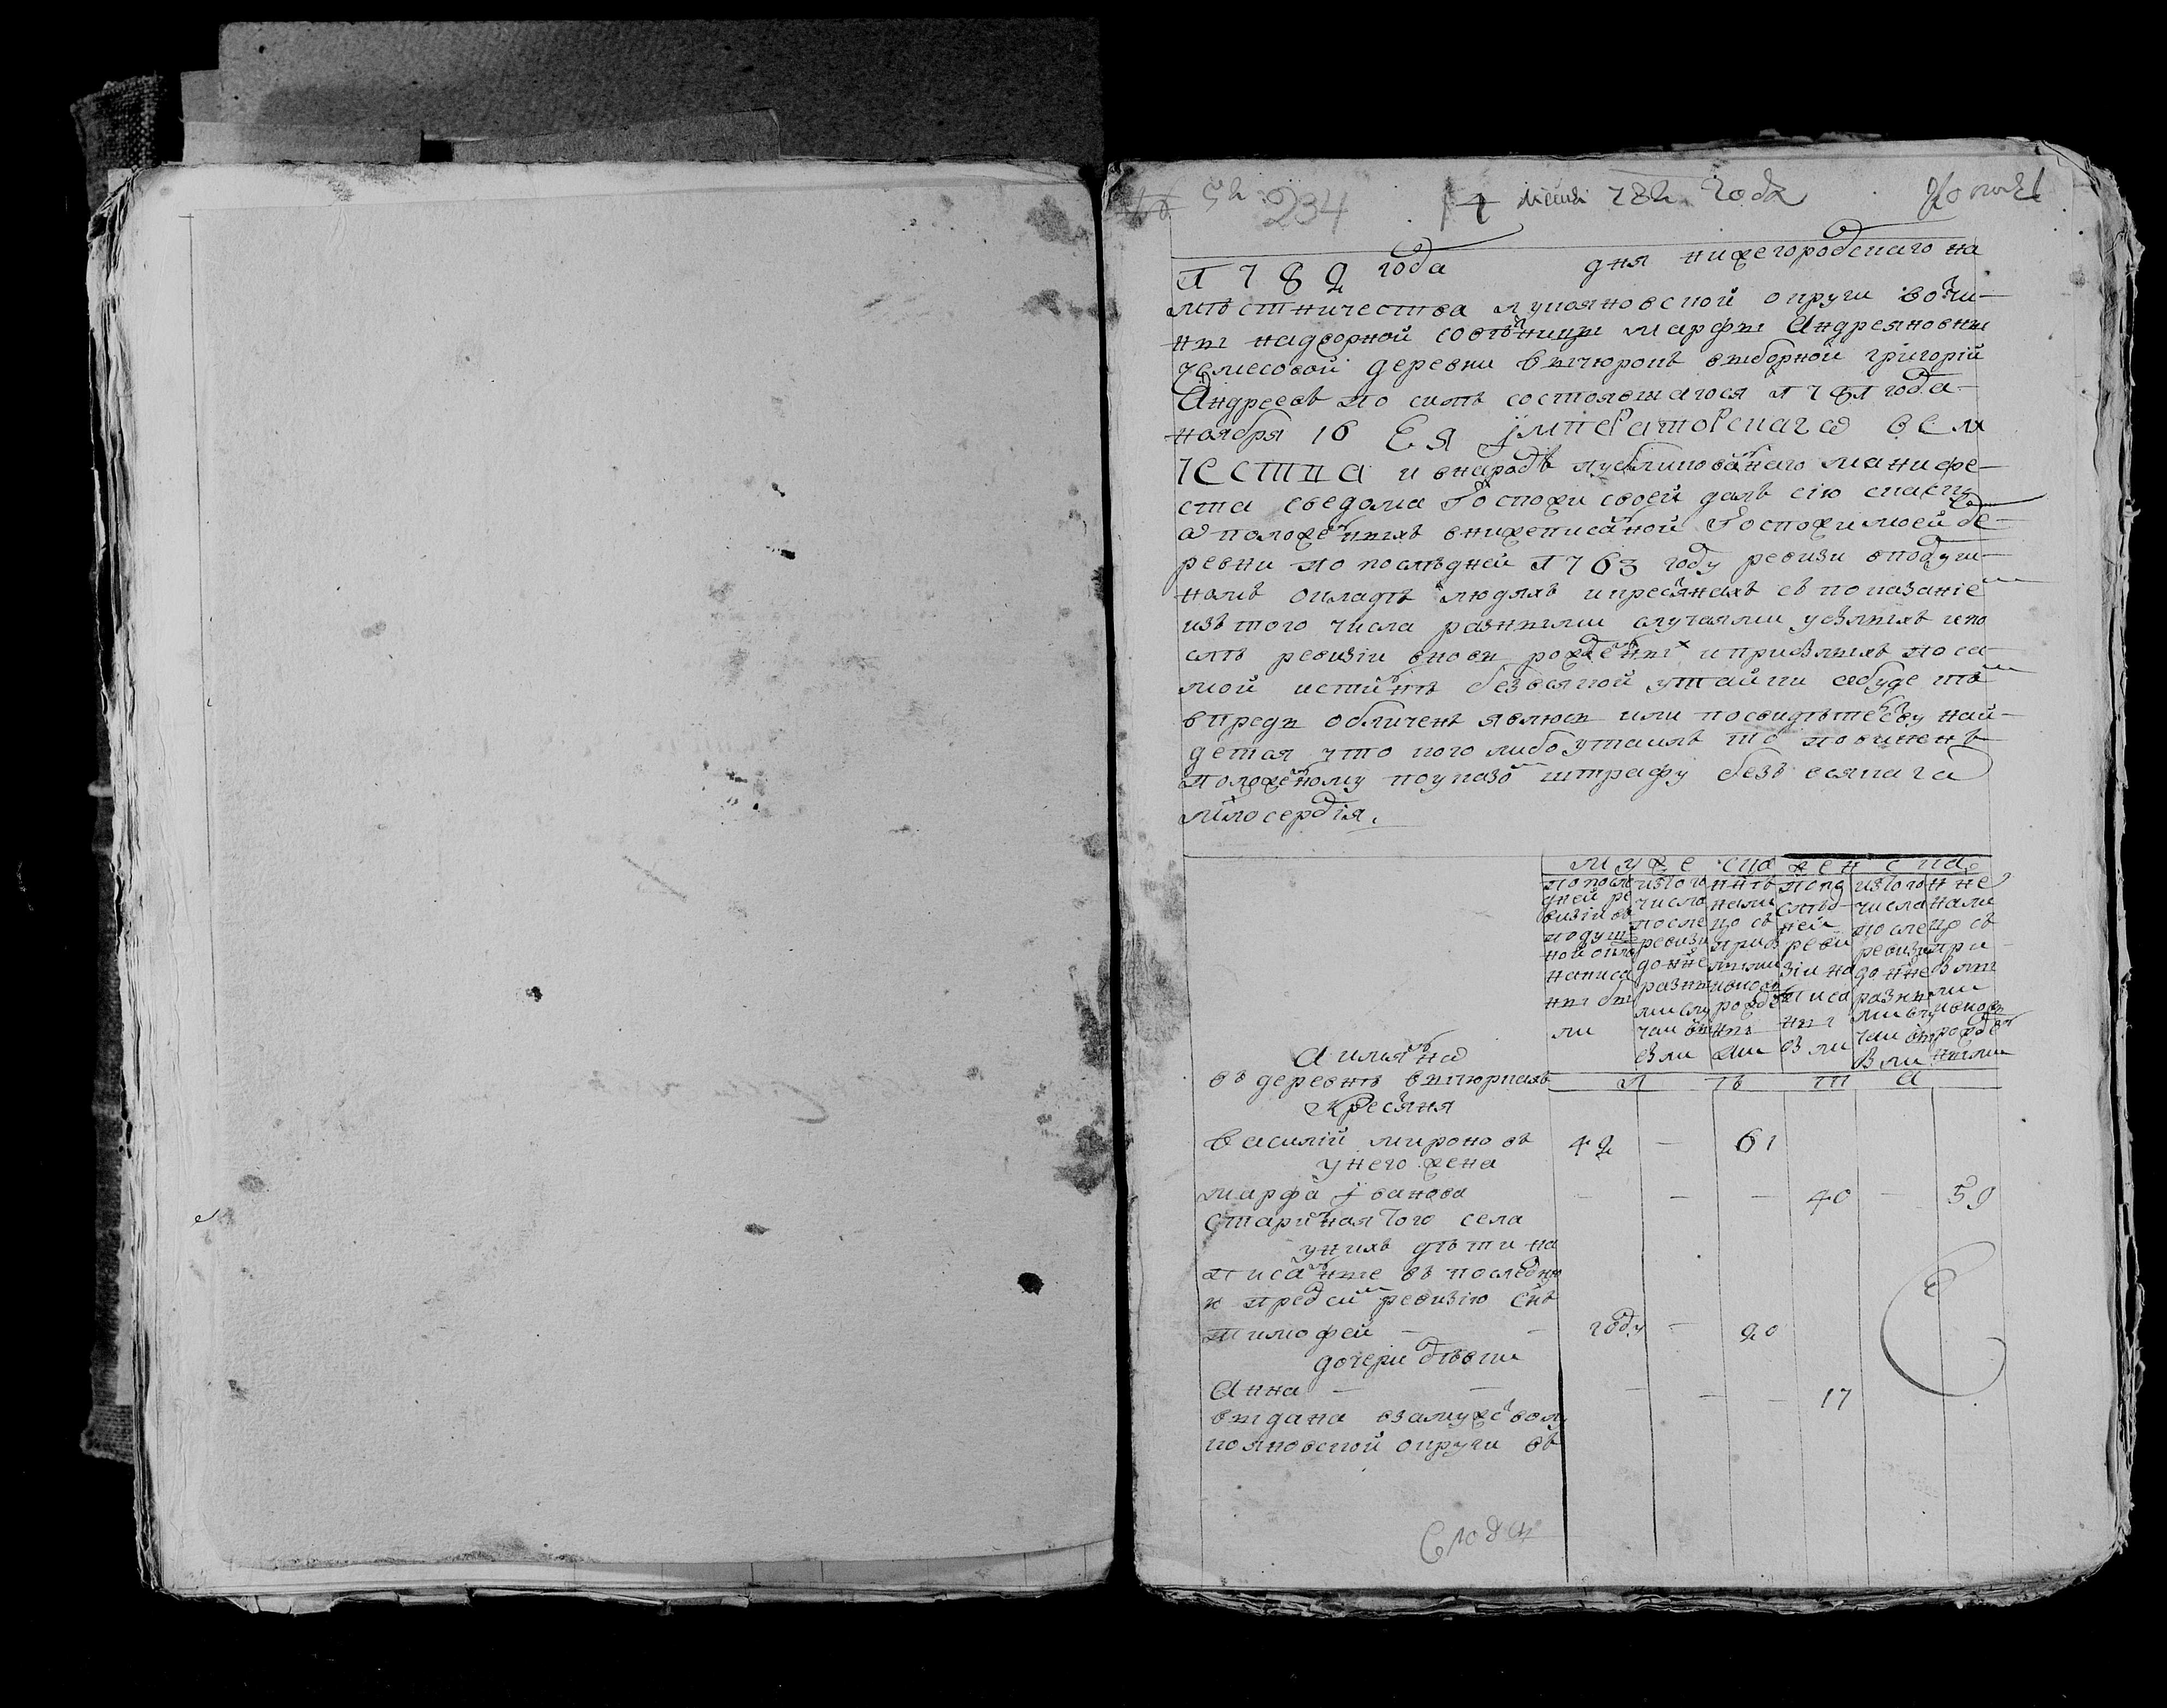 234 4 782 года
1782 года дня нижегородскаго на
мѣстничества лукояновской округи вочи-
ны надворной совѣтницы марфы Андреяновны
чемесовой деревни вычюрокъ выборной григорій
Андреевъ по силѣ состоявшагося 1781 года
ноября 16 Ея jмператорскаго вели
чества и внародъ публикованаго манифе-
ста сведома Госпожи своей далъ сію скаску
ѡ положенныхъ внижеписанной Госпожи моей де-
ревни по последней 1763 году ревизи вподуш-
номъ окладѣ людяхъ и кресянахъ съ показаніем
изъ того числа разными случаями убылыхъ ипо
слѣ ревизіи вновь рожденных и прибылыхъ по са-
мой истиннѣ безвсякой утайки аебуде въ том
впредь обличенъ явлюсь или посвидѣтелсву най-
детца что кого либо утаилъ то повиненъ
положеному поуказом штрафу безъ всякагѡ
милосердія.
мужеска женска
по после дней ре визіи въ подуш ной окла написа ны бы ли
изтого числа после ревизи доннѣ разны ми слу чаи вы были
ннѣ нали цо съ при был ыми вновь рожде ны ми
попо слѣд ней реви зіи на писа ны были
изтого числа после ревизи донне разны ми слу чаи вы были
нне нали цо съ при былы ми ивновь рожден ными
А имянно
въ деревнѣ вычюркахъ
Кресяня
лѣта
василій мироновъ 42 — 61
унего жена
марфа jванова — — — 40 — 59
старинная того села
унихъ дѣти на
писанные въ последню
ю пред сим ревизію снъ
тимофей — — году — 20
дочери дѣвки
Анна — — — — — 17
выдана взамужсво лу
кояновской округи въ